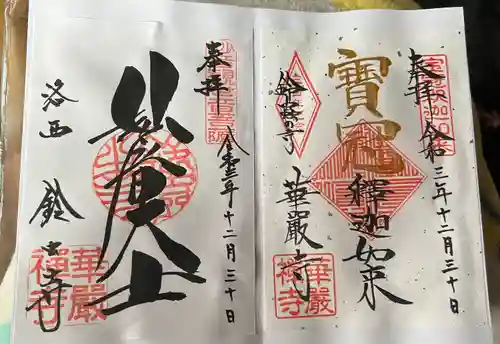 奉拝
令和三年十二月三十日
大士
洛西 鈴虫寺
華嚴
禅寺
奉拝
令和三年十二月三十日
寶冠
釋迦如来
華嚴寺
鈴虫の寺
華嚴
禅寺